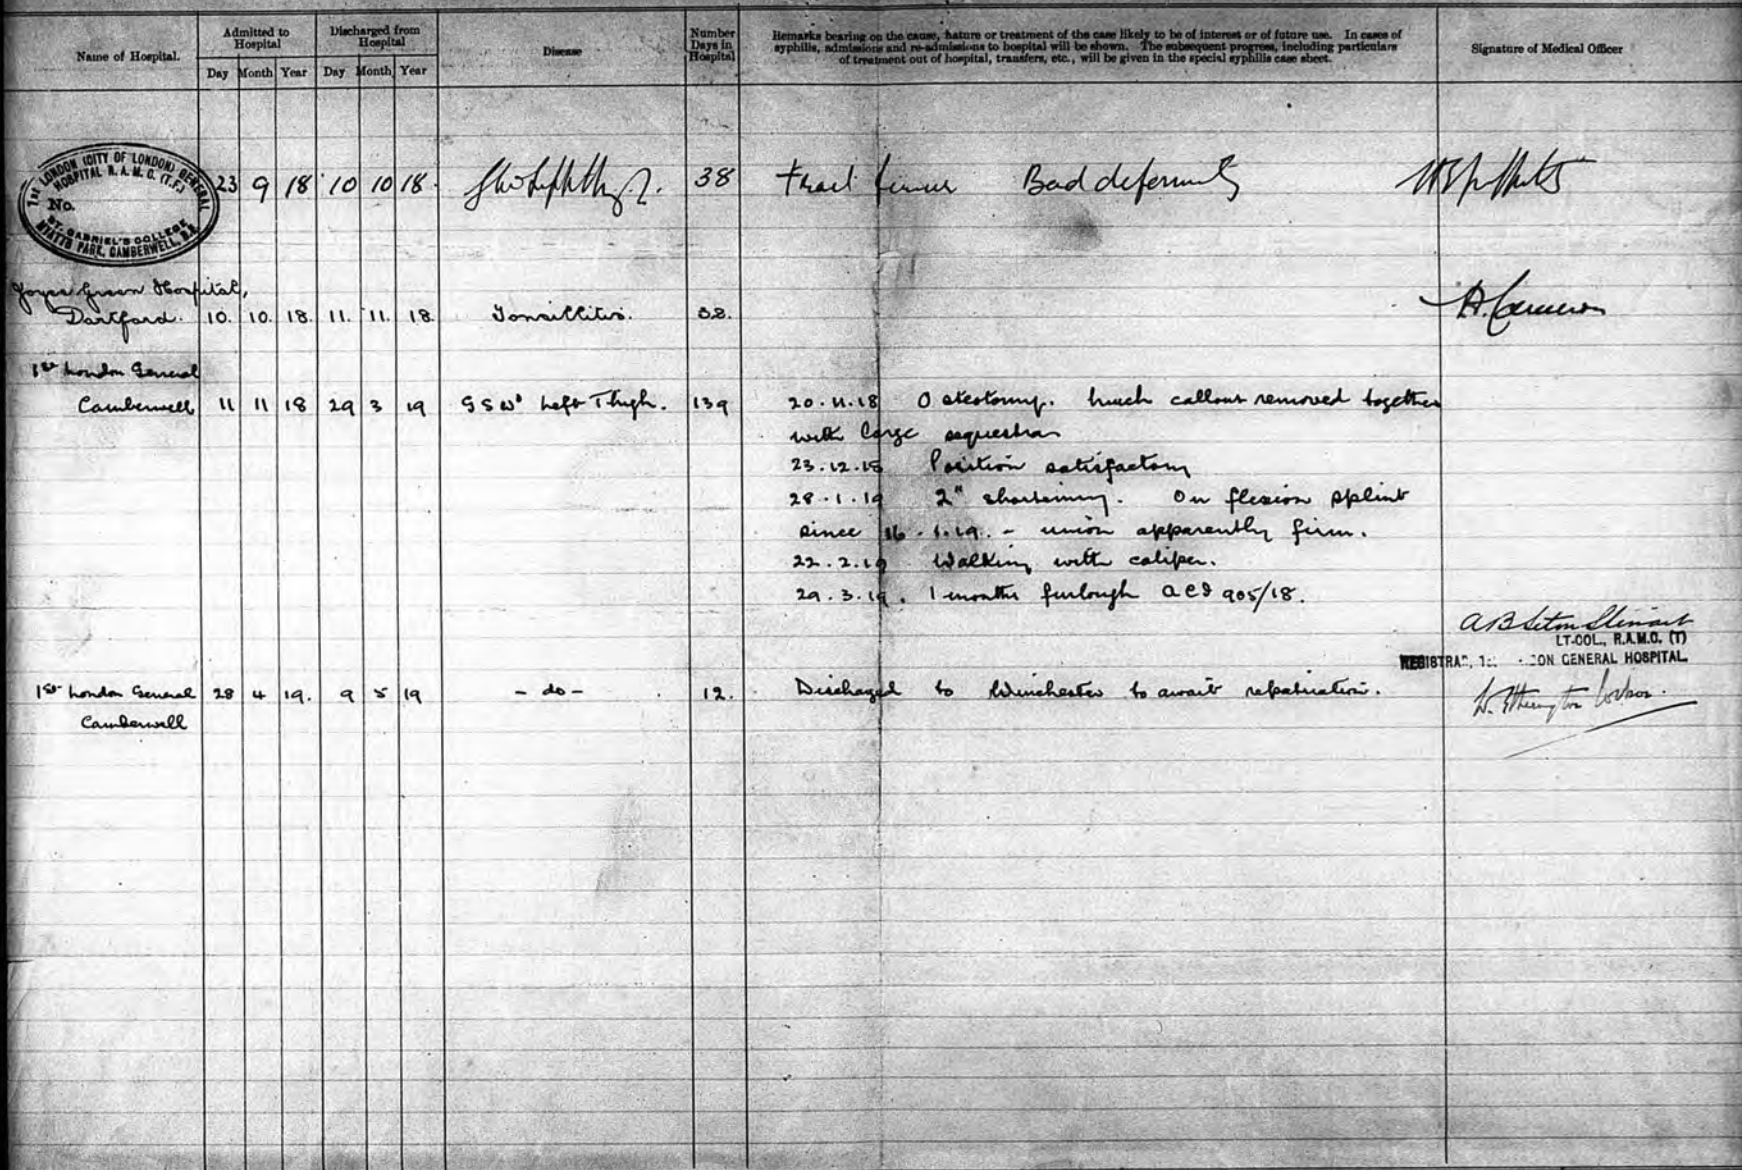 Name of Hospital.
Admitted to Hospital
Discharged from Hospital
Disease
Number Days in Hospital
Remarks bearing on the cause, nature or treatment of the case likely to be of interest or of future use. In cases of
syphilis, admissions and re-admissions to hospital will be shown. The subsequent progress, including particulars
of treatment out of hospital, transfers, etc., will be given in the special syphilis case sheet.
Signature of Medical Officer
Day Month Year Day Month Year
1st LONDON (CITY OF LONDON) GENERAL
HOSPITAL R.A.M.C. (T.F.)
No.
ST. GABRIEL'S COLLEGE
MYATTS PARK, CAMBERWELL, S.E.
23 9 18 10 10 18. 38 femur Bad deformity
Joyce Green Hospital,
Dartford. 10. 10. 18. 11. 11. 18. Tonsillitis. 32. A. Cameron
1st London General
Camberwell 11 11 18 29 3 19 GSW Left Thigh. 139 20.11.18 Osteotomy. Much callous removed together
with large sequestra
23.12.18 Position satisfactory
28.1.19 2" shortening. On flexion splint
since 16.1.19. - union apparently firm.
22.2.19 Walking with caliper.
29.3.19. 1 months furlough ACI 905/18.
A B Seton Stewart
LT-COL., R.A.M.C. (T)
REGISTRAR, GENERAL HOSPITAL.
1st London General 28 4 19. 9 5 19 - do - 12. Discharged to Winchester to await repatriation.
Camberwell